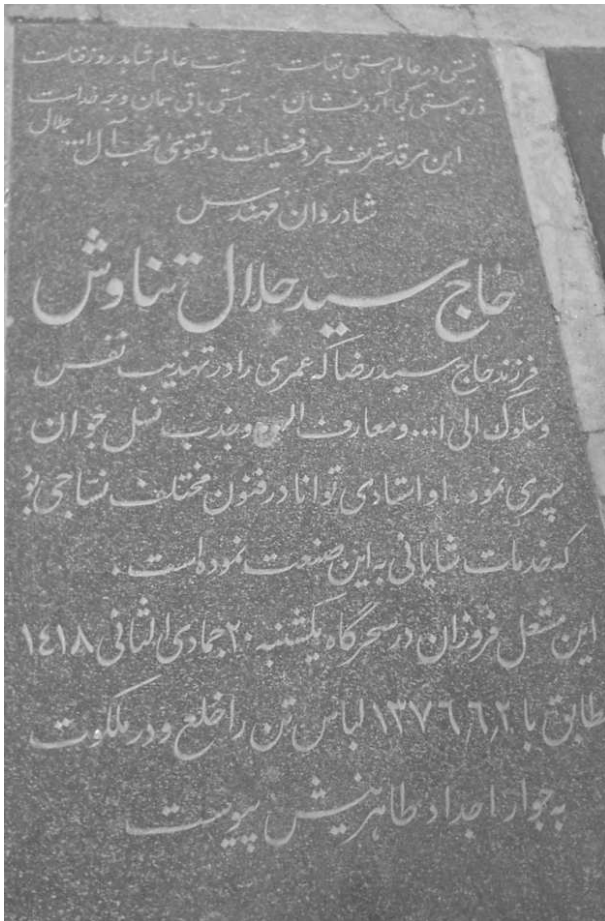 نیستی در عالم هستی بقاست نیست عالم شاهد روز فناست
ذره هستی کجا آرد نشان هستی باقی همان وجه خداست
جلال
این مرقد شریف مرد فضیلت و تقوی محب آل ا...
شادروان مهندس
حاج سید جلال تناوش
فرزند حاج سید رضا که عمری را در تهذیب نفس
و سلوک الی ا... و معارف الهی و جذب نسل جوان
سپری نمود. او استادی توانا در فنون مختلف نساجی بود
که خدمات شایانی به این صنعت نموده است.
این مشعل فروزان در سحرگاه یکشنبه ۲۰ جمادی الثانی ۱٤۱۸
مطابق با ۱۳۷٦٫٦٫۲ لباس تن را خلع و در ملکوت
به جوار اجداد طاهرینش پیوست